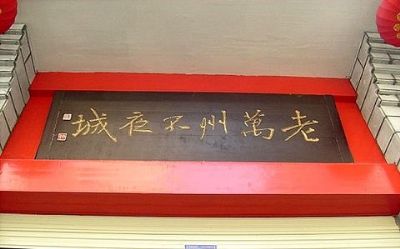 老萬州不夜城